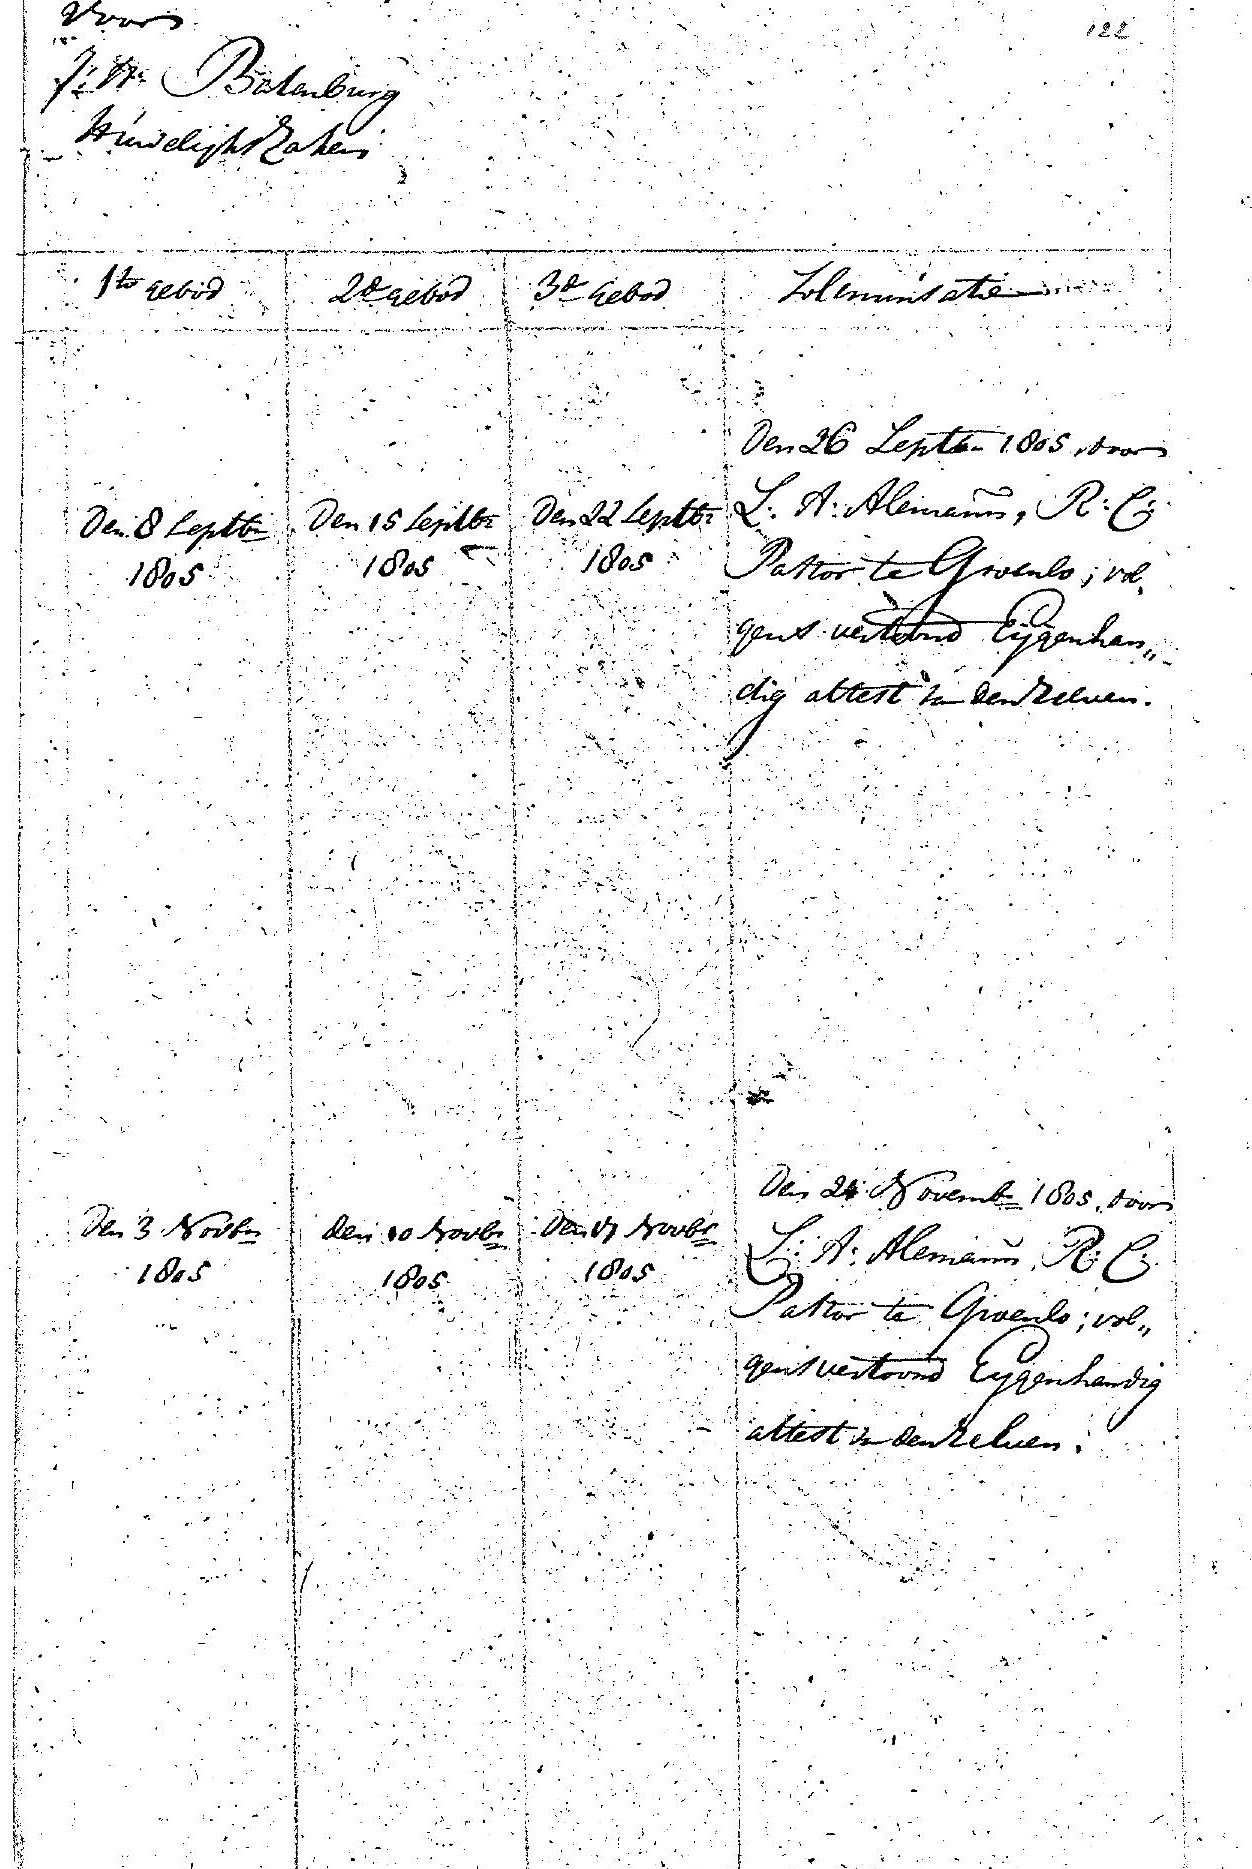 122
voor
Batenburg
Huwelijks Zaken
1te Gebod 2de Gebod 3de Gebod Solemnisatie
Den 26 Septbr 1805, door
Den 8 Septbr Den 15 Septbr Den 22 Septbr L: A: Alemann, R: C:
1805 1805 1805 Pastor te Groenlo; vol„
gens vertoond Eygenhan„
dig attest van denzelven.
Den 24 Novembr 1805, door
Den 3 Novbr den 10 Novbr Den 17 Novbr L: A: Alemann, R: C:
1805 1805 1805 Pastor te Groenlo; vol„
gens vertoond Eygenhandig
attest van denzelven.